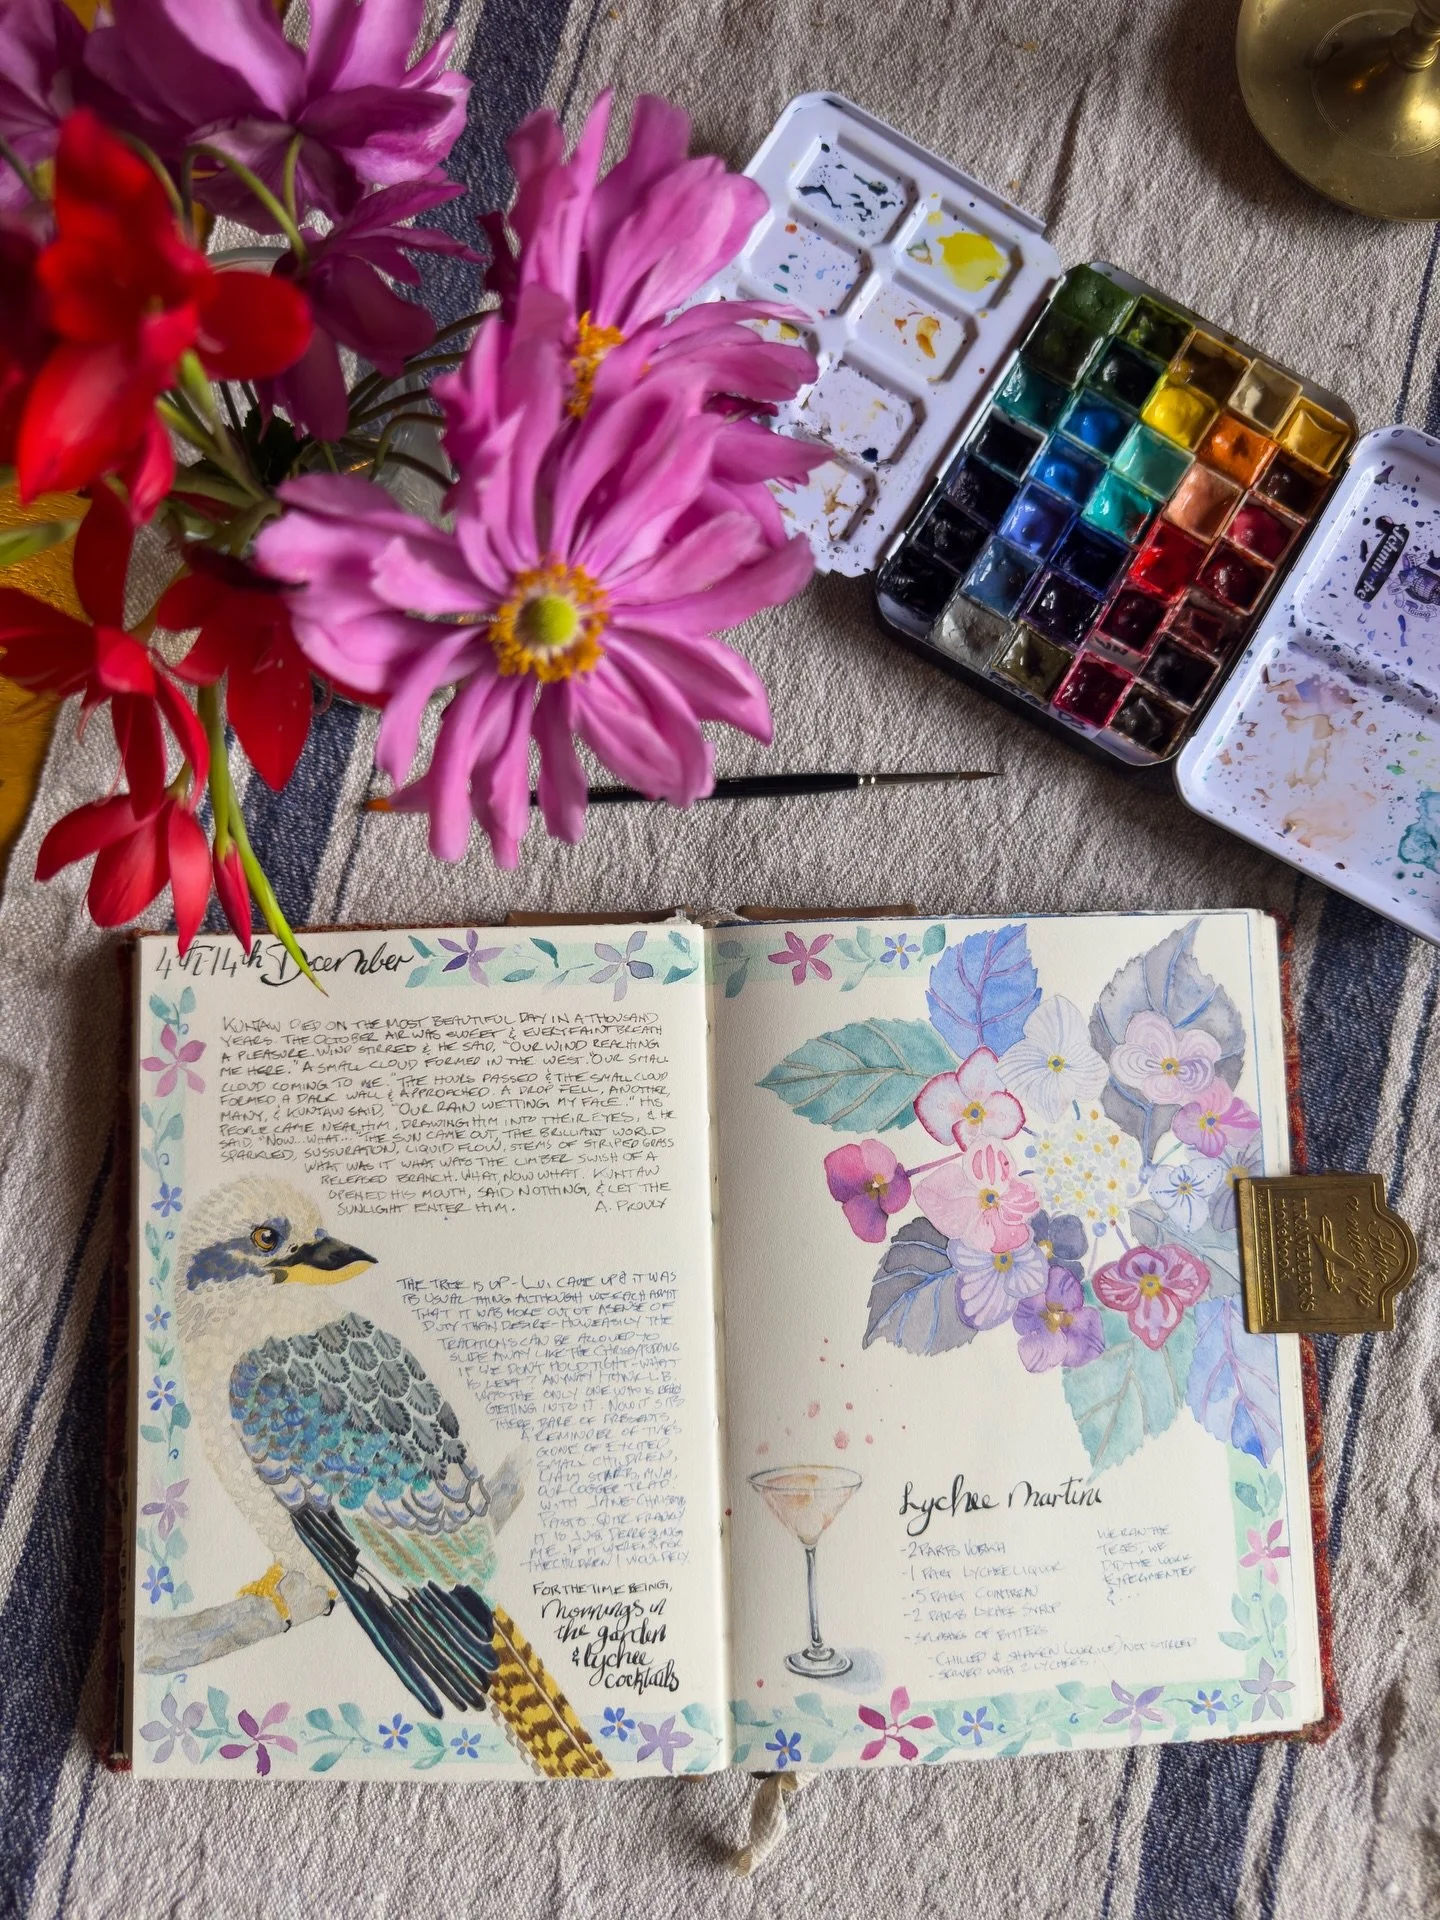 4th/14th December
KUNTAW DIED ON THE MOST BEAUTIFUL DAY IN A THOUSAND
YEARS. THE OCTOBER AIR WAS SWEET & EVERY FAINT BREATH
A PLEASURE. WIND STIRRED & HE SAID, "OUR WIND REACHING
ME HERE." A SMALL CLOUD FORMED IN THE WEST. "OUR SMALL
CLOUD COMING TO ME." THE HOURS PASSED & THE SMALL CLOUD
FORMED A DARK WALL & APPROACHED. A DROP FELL, ANOTHER,
MANY, & KUNTAW SAID, "OUR RAIN WETTING MY FACE." HIS
PEOPLE CAME NEAR HIM, DRAWING HIM INTO THEIR EYES, & HE
SAID, "NOW... WHAT..." THE SUN CAME OUT, THE BRILLIANT WORLD
SPARKLED, SUSSURATION, LIQUID FLOW, STEMS OF STRIPED GRASS
WHAT WAS IT WHAT WAS THE LIMBER SWISH OF A
RELEASED BRANCH. WHAT, NOW WHAT. KUNTAW
OPENED HIS MOUTH, SAID NOTHING, & LET THE
SUNLIGHT ENTER HIM. A. PROULX
THE TREE IS UP - LUI CAME UP & IT WAS
USUAL THING ALTHOUGH WE EACH ADMIT
THAT IT WAS MORE OUT OF A SENSE OF
DUTY THAN DESIRE - HOW EASILY THE
TRADITIONS CAN BE ALLOWED TO
SLIDE AWAY LIKE THE CHRISSY PUDDING
IF WE DON'T HOLD TIGHT - WHAT
IS LEFT? ANYWAY I THINK L.B.
THE ONLY ONE WHO IS
GETTING INTO IT. NOW IT SITS
THERE, BARE OF PRESENTS,
A REMINDER OF TIMES
GONE OF EXCITED
SMALL CHILDREN,
OUR
WITH
QUITE FRANKLY
IT IS JUST DEPRESSING
ME. IF IT WEREN'T FOR
THE CHILDREN I WOULDN'T.
FOR THE TIME BEING,
Mornings in
the garden
& lychee
cocktails
Lychee Martini
-2 PARTS VODKA
-1 PART LYCHEE LIQUOR
-.5 PART COINTREAU
-2 PARTS SYRUP
-SPLASHES OF BITTERS
-CHILLED & SHAKEN (OVER ICE) NOT STIRRED
-SERVED WITH 2 LYCHEES.
WE RAN THE
TEST, WE
DID THE WORK
EXPERIMENTED
&...
Schmincke
TRAVELER'S
notebook